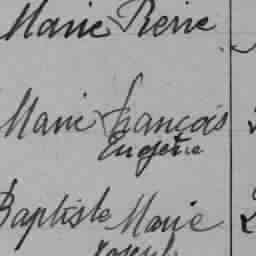 Marie Reine
Marie François
Eugène
Baptiste Marie
Joseph